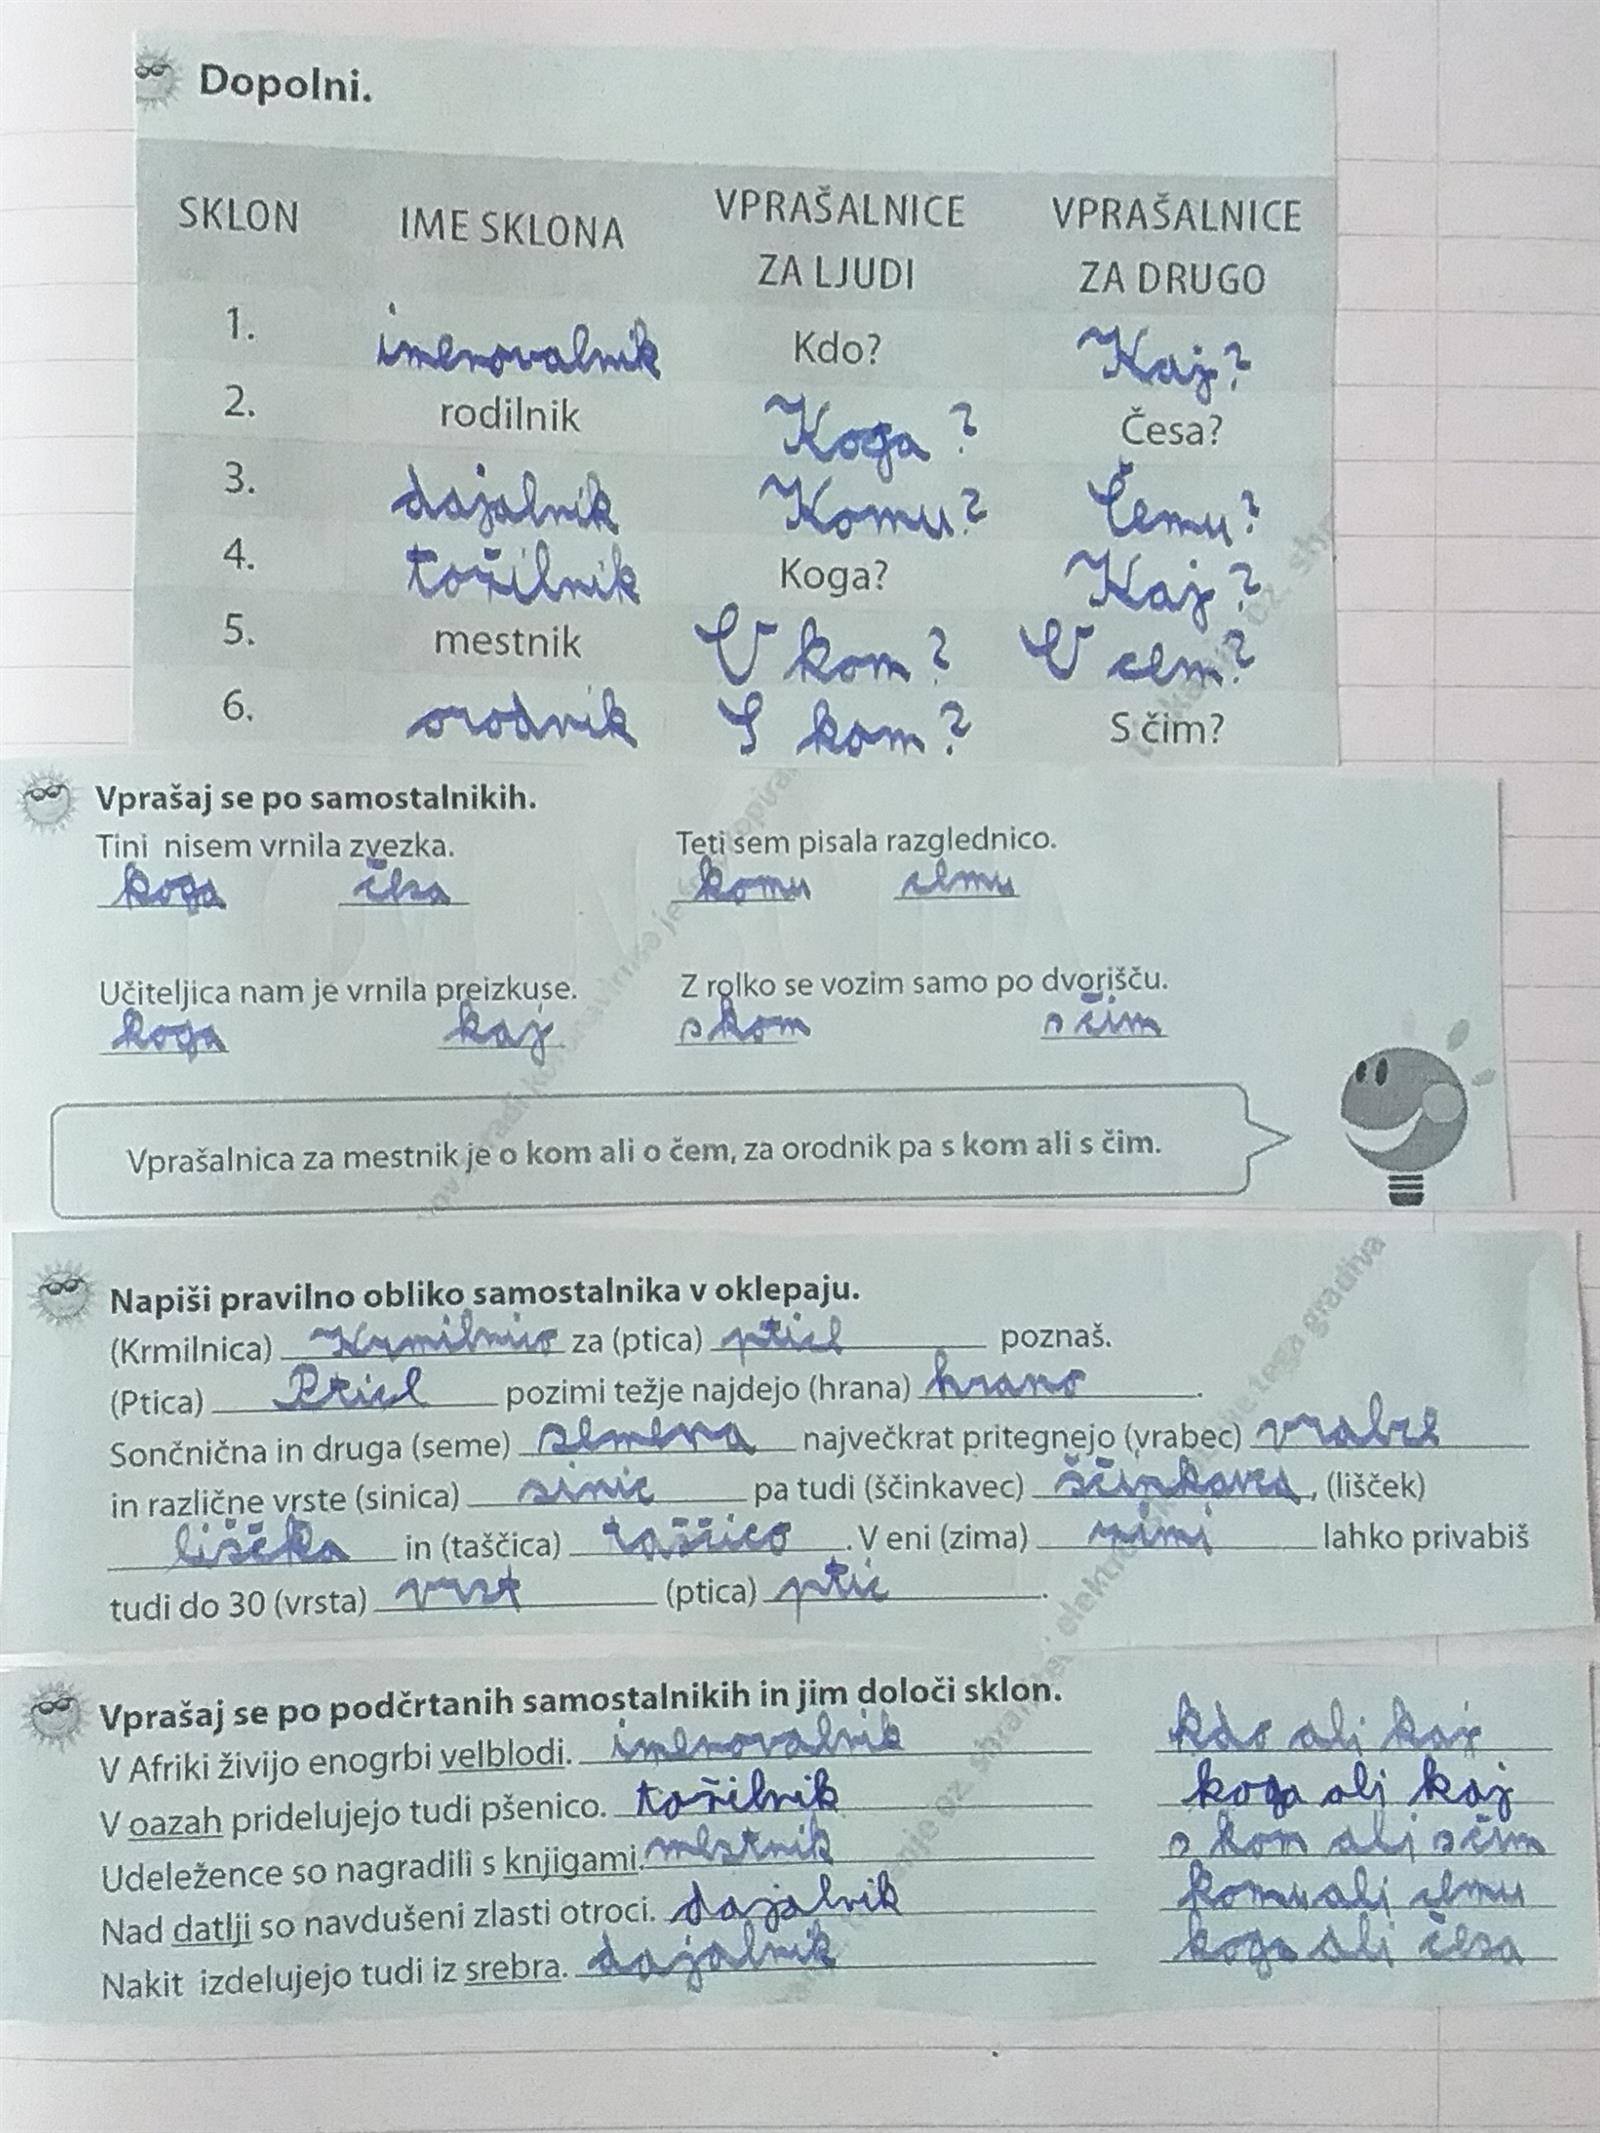 Dopolni.
SKLON IME SKLONA VPRAŠALNICE ZA LJUDI VPRAŠALNICE ZA DRUGO
1. imenovalnik Kdo? Kaj?
2. rodilnik Koga? Česa?
3. dajalnik Komu? Čemu?
4. tožilnik Koga? Kaj?
5. mestnik V kom? V cem?
6. orodnik S kom? S čim?
Vprašaj se po samostalnikih.
Tini nisem vrnila zvezka. Teti sem pisala razglednico.
koga česa komu cemu
Učiteljica nam je vrnila preizkuse. Z rolko se vozim samo po dvorišču.
koga kaj s kom s čim
Vprašalnica za mestnik je o kom ali o čem, za orodnik pa s kom ali s čim.
Napiši pravilno obliko samostalnika v oklepaju.
(Krmilnica) Krmilnico za (ptica) ptice poznaš.
(Ptica) Ptice pozimi težje najdejo (hrana) hrano.
Sončnična in druga (seme) semena največkrat pritegnejo (vrabec) vrabce
in različne vrste (sinica) sinic pa tudi (ščinkavec) ščinkavca, (lišček)
liščka in (taščica) taščico. V eni (zima) zimi lahko privabiš
tudi do 30 (vrsta) vrst (ptica) ptic.
Vprašaj se po podčrtanih samostalnikih in jim določi sklon.
V Afriki živijo enogrbi velblodi. imenovalnik kdo ali kaj
V oazah pridelujejo tudi pšenico. tožilnik koga ali kaj
Udeležence so nagradili s knjigami. mestnik s kom ali s čim
Nad datlji so navdušeni zlasti otroci. dajalnik komu ali cemu
Nakit izdelujejo tudi iz srebra. dajalnik koga ali česa